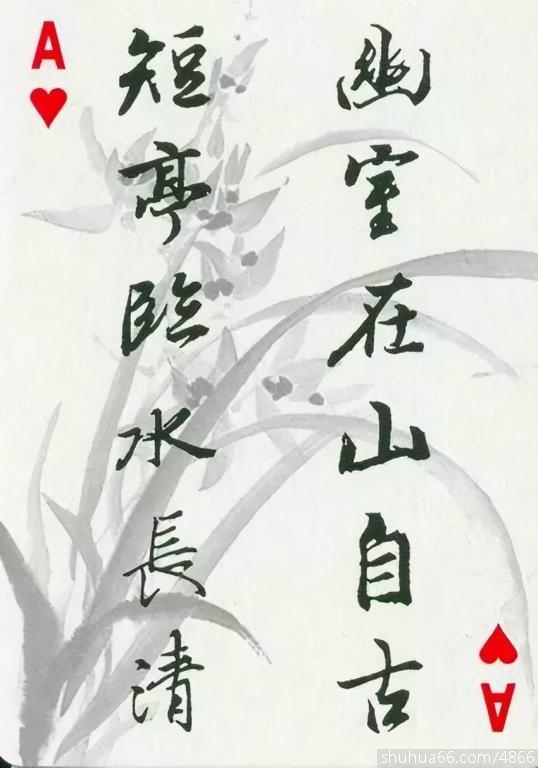 A
幽室在山自古
短亭臨水長清
A
shuhua66.com/4866